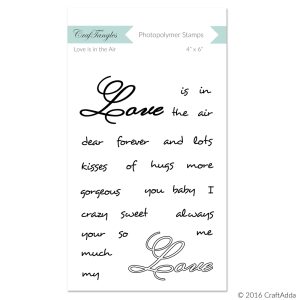 CrafTangles
Photopolymer Stamps
Love Is in the Air
4" x 6"
Love is in
the air
dear forever and lots
kisses of hugs more
gorgeous you baby I
crazy sweet always
your so me
much Love
my
© 2016 CraftAdda